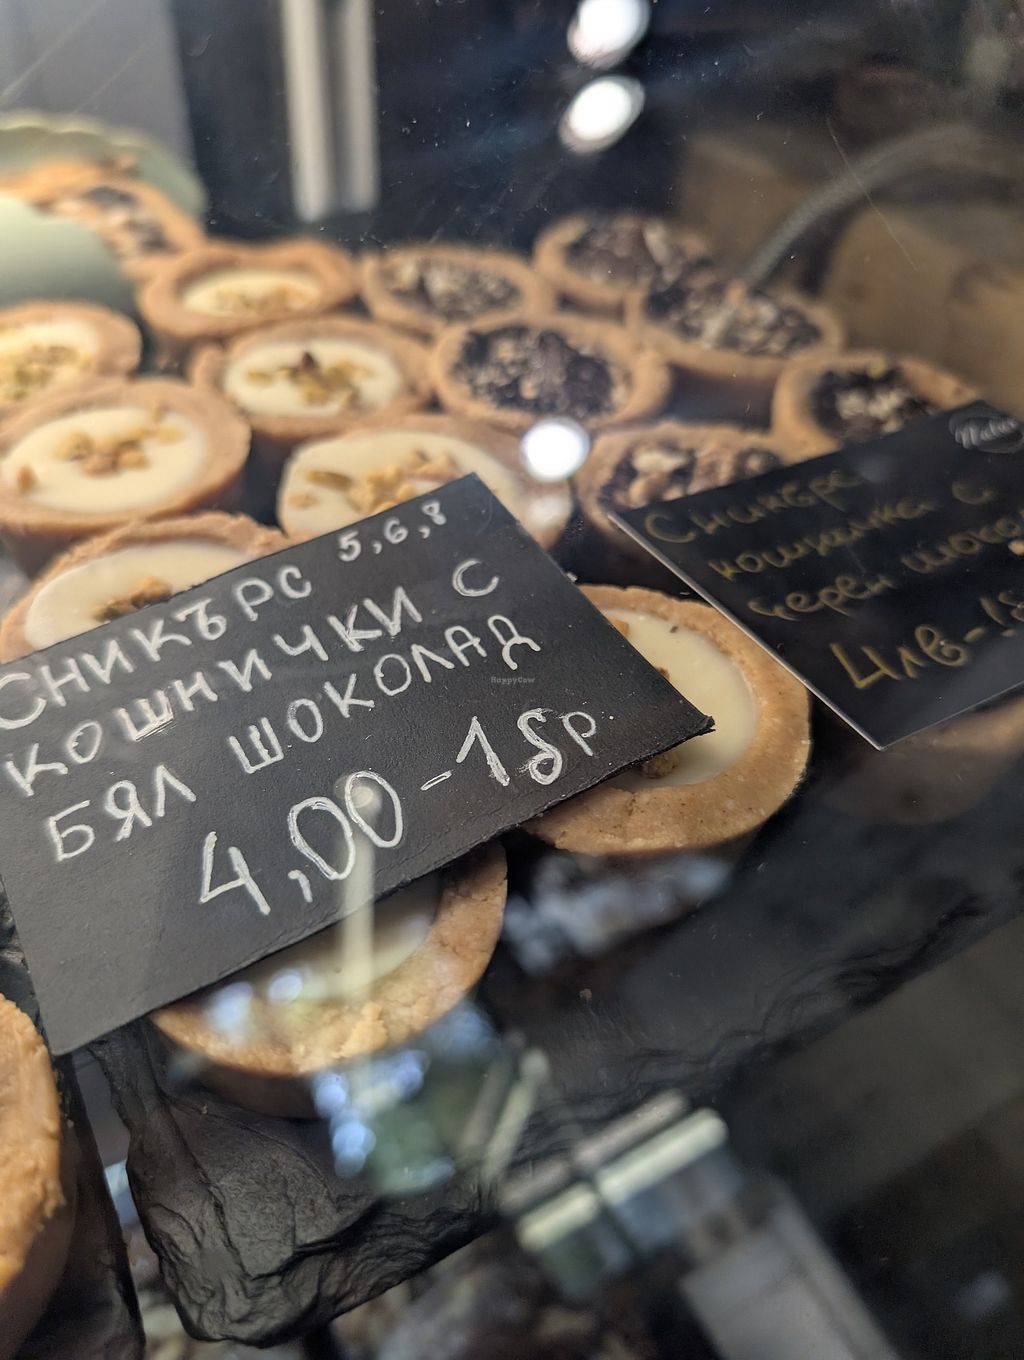 5,6,8
СНИКЪРС
КОШНИЧКИ С
БЯЛ ШОКОЛАД
4,00-1бр
HappyCow
Сникърс
кошничка с
черен шоко
4лв-1б